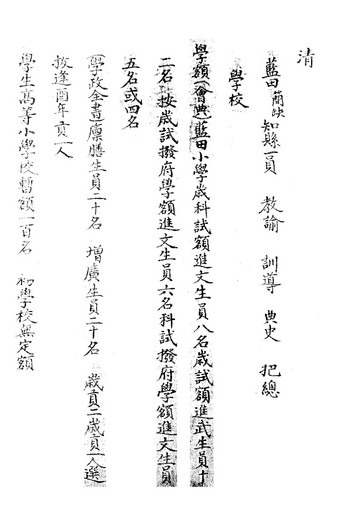 清
藍田簡缺知縣一員 教諭 訓導 典史 把總
學校
學額會典藍田小學歲科試額進文生員八名歲試額進武生員十
二名按歲試撥府學額進文生員六名科試撥府學額進文生員
五名或四名
學政全書廩膳生員二十名 增廣生員二十名 歲貢二歲貢一人選
拔逢酉年貢一人
學生高等小學校暫額一百名 初學校無定額